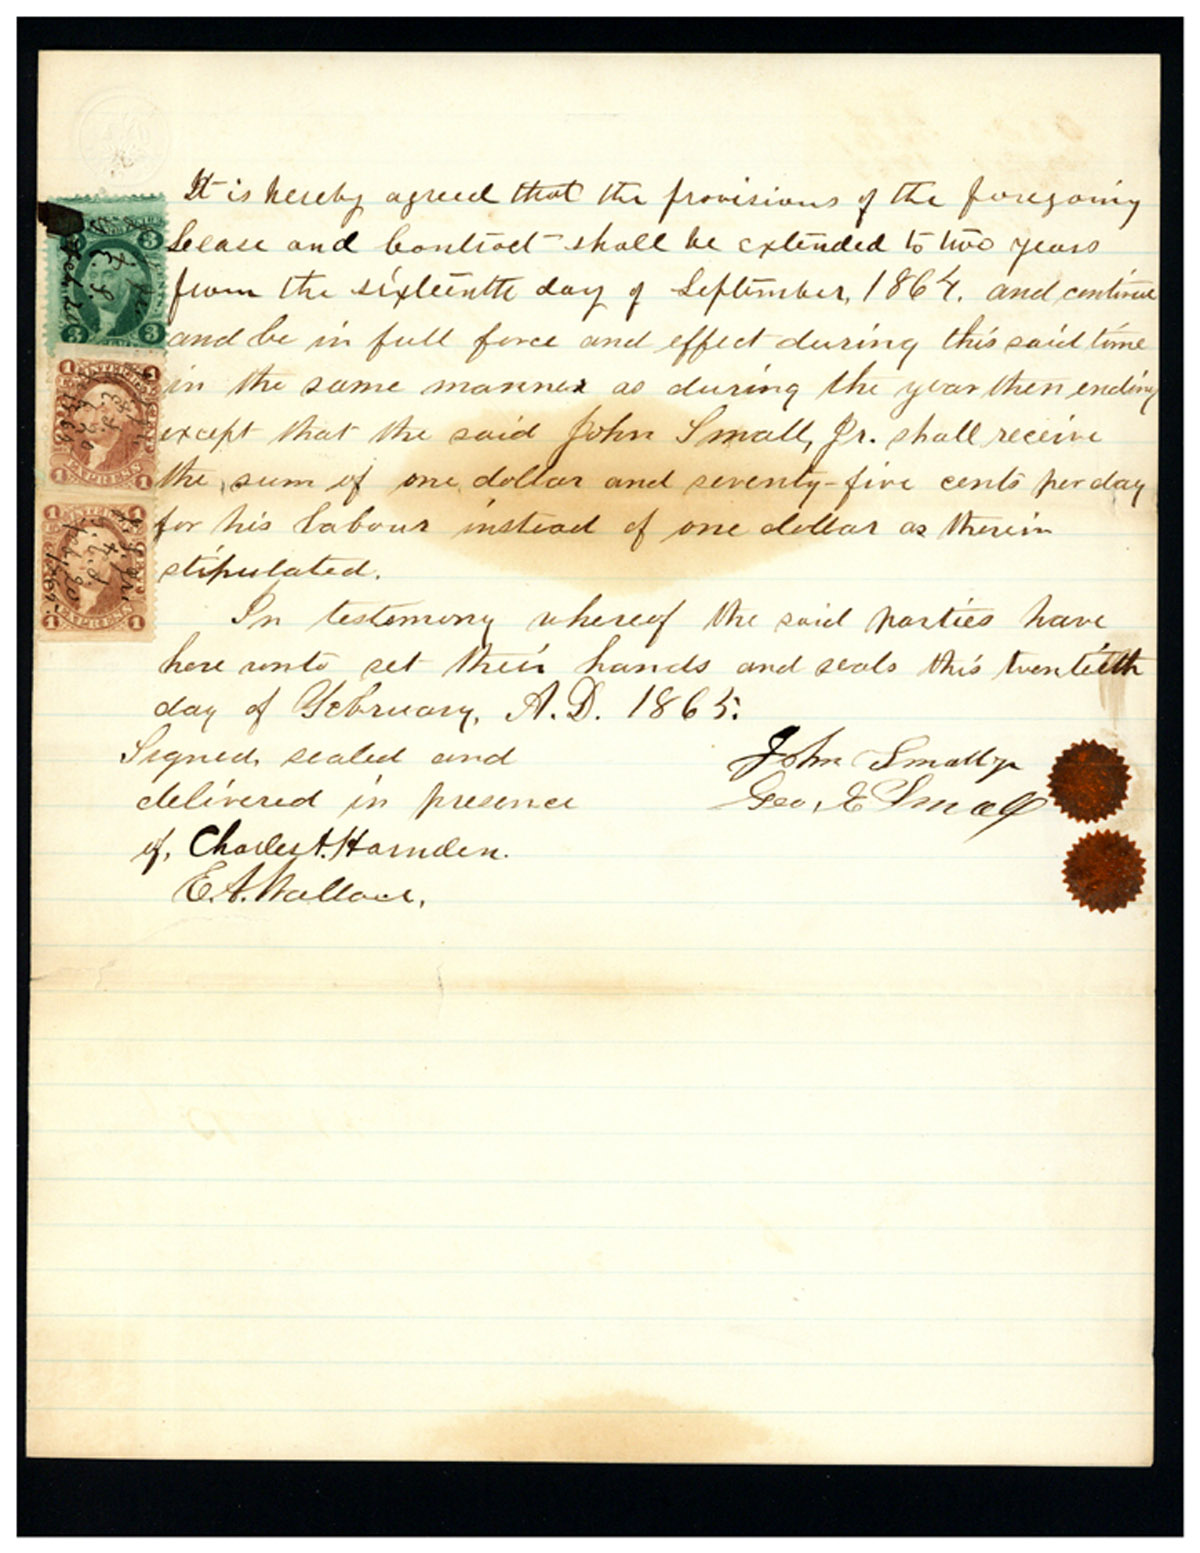 It is hereby agreed that the provisions of the foregoing
Lease and Contract shall be extended to two years
from the sixteenth day of September, 1864. and continue
and be in full force and effect during this said time
in the same manner as during the year then ending
except that the said John Small, Jr. shall receive
the sum of one dollar and seventy-five cents per day
for his labour instead of one dollar as therein
stipulated.
In testimony whereof the said parties have
here unto set their hands and seals this twentieth
day of February, A.D. 1865.
Signed, sealed and
delivered in presence
of, Charles A. Harnden.
E. A. Wallace.
John Small Jr
Geo. E Small
3 3
3 3
1 1
1 EXPRESS 1
1 1
1 EXPRESS 1
Feb. 20
1865